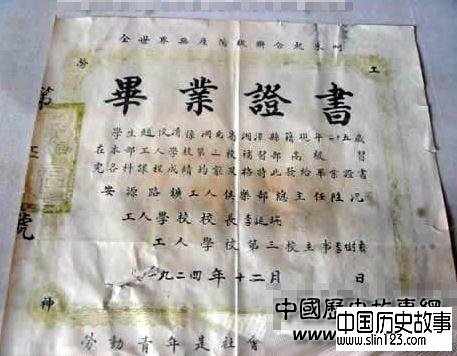 全世界無產階級聯合起來呵
勞 工
畢業證書
學生趙汉清係湖南省湘潭縣籍現年一五歲
在本部工人學校第三校補習部高級 習
完各科課程成績均能及格特此發給畢業證書
安源路鑛工人俱樂部總主任陸沉
工人學校校長李延瑞
工人學校第三校主事李
一九二四年十二月 日
第 號
神
勞動青年是社會
中國歷史故事網
中国历史故事
www.slin123.com